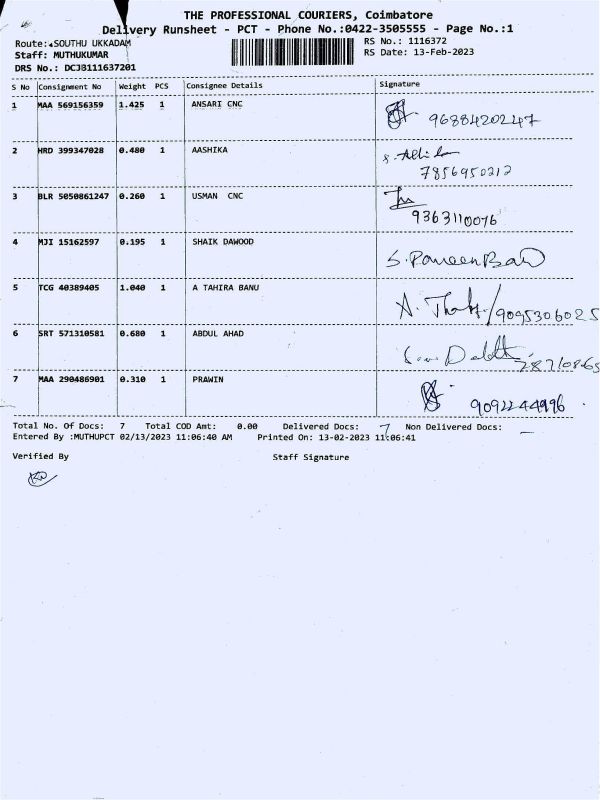 THE PROFESSIONAL COURIERS, Coimbatore
Delivery Runsheet - PCT - Phone No.:0422-3505555 - Page No.:1
Route: SOUTHU UKKADAM
Staff: MUTHUKUMAR
DRS No.: DCJB111637201
RS No.: 1116372
RS Date: 13-Feb-2023
S No Consignment No Weight PCS Consignee Details Signature
1 MAA 569156359 1.425 1 ANSARI CNC
9688420247
2 HRD 399347028 0.480 1 AASHIKA
7856950212
3 BLR 5050861247 0.260 1 USMAN CNC
9363110076
4 MJI 15162597 0.195 1 SHAIK DAWOOD
5 TCG 40389405 1.040 1 A TAHIRA BANU
9095306025
6 SRT 571310581 0.680 1 ABDUL AHAD
7 MAA 290486901 0.310 1 PRAWIN
9092244996
Total No. Of Docs: 7 Total COD Amt: 0.00 Delivered Docs: 7 Non Delivered Docs: —
Entered By :MUTHUPCT 02/13/2023 11:06:40 AM Printed On: 13-02-2023 11:06:41
Verified By Staff Signature